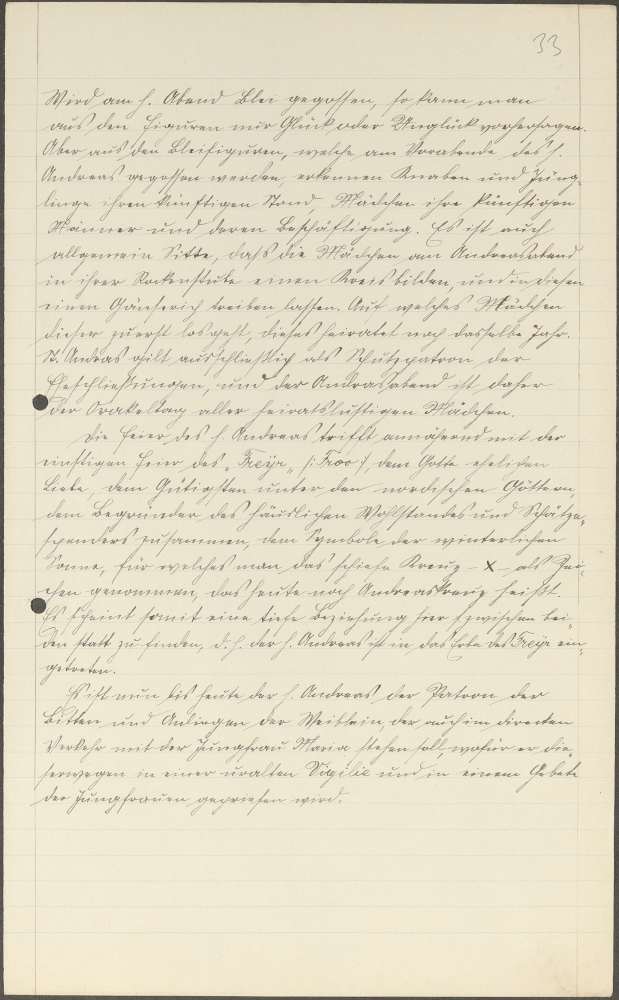 33
Wird am h. Abend Blei gegossen, so kann man
aus den Figuren nur Glück oder Unglück vorhersagen.
Aber aus den Bleifiguren, welche am Vorabende des h.
Andreas gegossen werden, erkennen Knaben und Jüng-
linge ihren künftigen Stand, Mädchen ihre künftigen
Männer und deren Beschäftigung. Es ist auch
allgemein Sitte, daß die Mädchen am Andreasabend
in ihrer Rockenstube einen Kreis bilden, und in diesen
einen Gänserich treiben lassen. Auf welches Mädchen
dieser zuerst losgeht, dieses heiratet noch dasselbe Jahr.
St. Andras gilt ausschließlich als Schutzpatron der
Eheschließungen, und der Andrasabend ist daher
der Orakeltag aller heiratslustigen Mädchen.
Die Feier des h. Andreas trifft annähernd mit der
einstigen Feier des „Freyr„ /: Froo :/ dem Gotte ehelichen
Liebe, dem Gütigsten unter den nordischen Göttern,
dem Begründer des häuslichen Wohlstandes und Schätze-
spenders zusammen, dem Symbole der winterlichen
Sonne, für welches man das schiefe Kreuz – x – als Zei-
chen genommen, das heute noch Andreaskreuz heißt.
Es scheint somit eine tiefe Beziehung hier zwischen bei-
den statt zu finden, d. h. der h. Andreas ist in das Erbe des Freyr ein-
getreten.
Es ist nun bis heute der h. Andreas der Patron der
Bitten und Anliegen der Weiblein, der auch im directen
Verkehr mit der Jungfrau Maria stehen soll, wofür er die-
serwegen in einer uralten Vigilie und in einem Gebete
der Jungfrauen gepriesen wird.